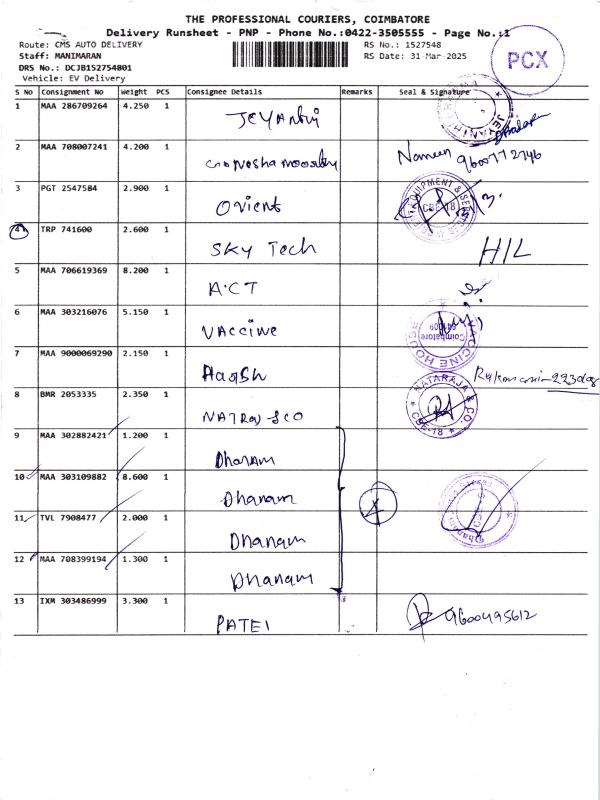 THE PROFESSIONAL COURIERS, COIMBATORE
Delivery Runsheet - PNP - Phone No.:0422-3505555 - Page No.:1
Route: CMS AUTO DELIVERY RS No.: 1527548
Staff: MANIMARAN RS Date: 31-Mar-2025
DRS No.: DCJB152754801
Vehicle: EV Delivery
PCX
S No Consignment No Weight PCS Consignee Details Remarks Seal & Signature
1 MAA 286709264 4.250 1 JEYAnthi
2 MAA 708007241 4.200 1 Naveen 9600772746
3 PGT 2547584 2.900 1 Orient CBE-18
4 TRP 741600 2.600 1 SKY Tech H/L
5 MAA 706619369 8.200 1 A.CT
6 MAA 303216076 5.150 1 VAccine VACCINE HOUSE Coimbatore
7 MAA 9000069290 2.150 1
8 BMR 2053335 2.350 1 NATRAJ &CO NATARAJA & CO CBE-18
9 MAA 302882421 1.200 1 Dhanam
10 MAA 303109882 8.600 1 Dhanam
11 TVL 7908477 2.000 1 Dhanam
12 MAA 708399194 1.300 1 Dhanam
13 IXM 303486999 3.300 1 PATEl 9600495612